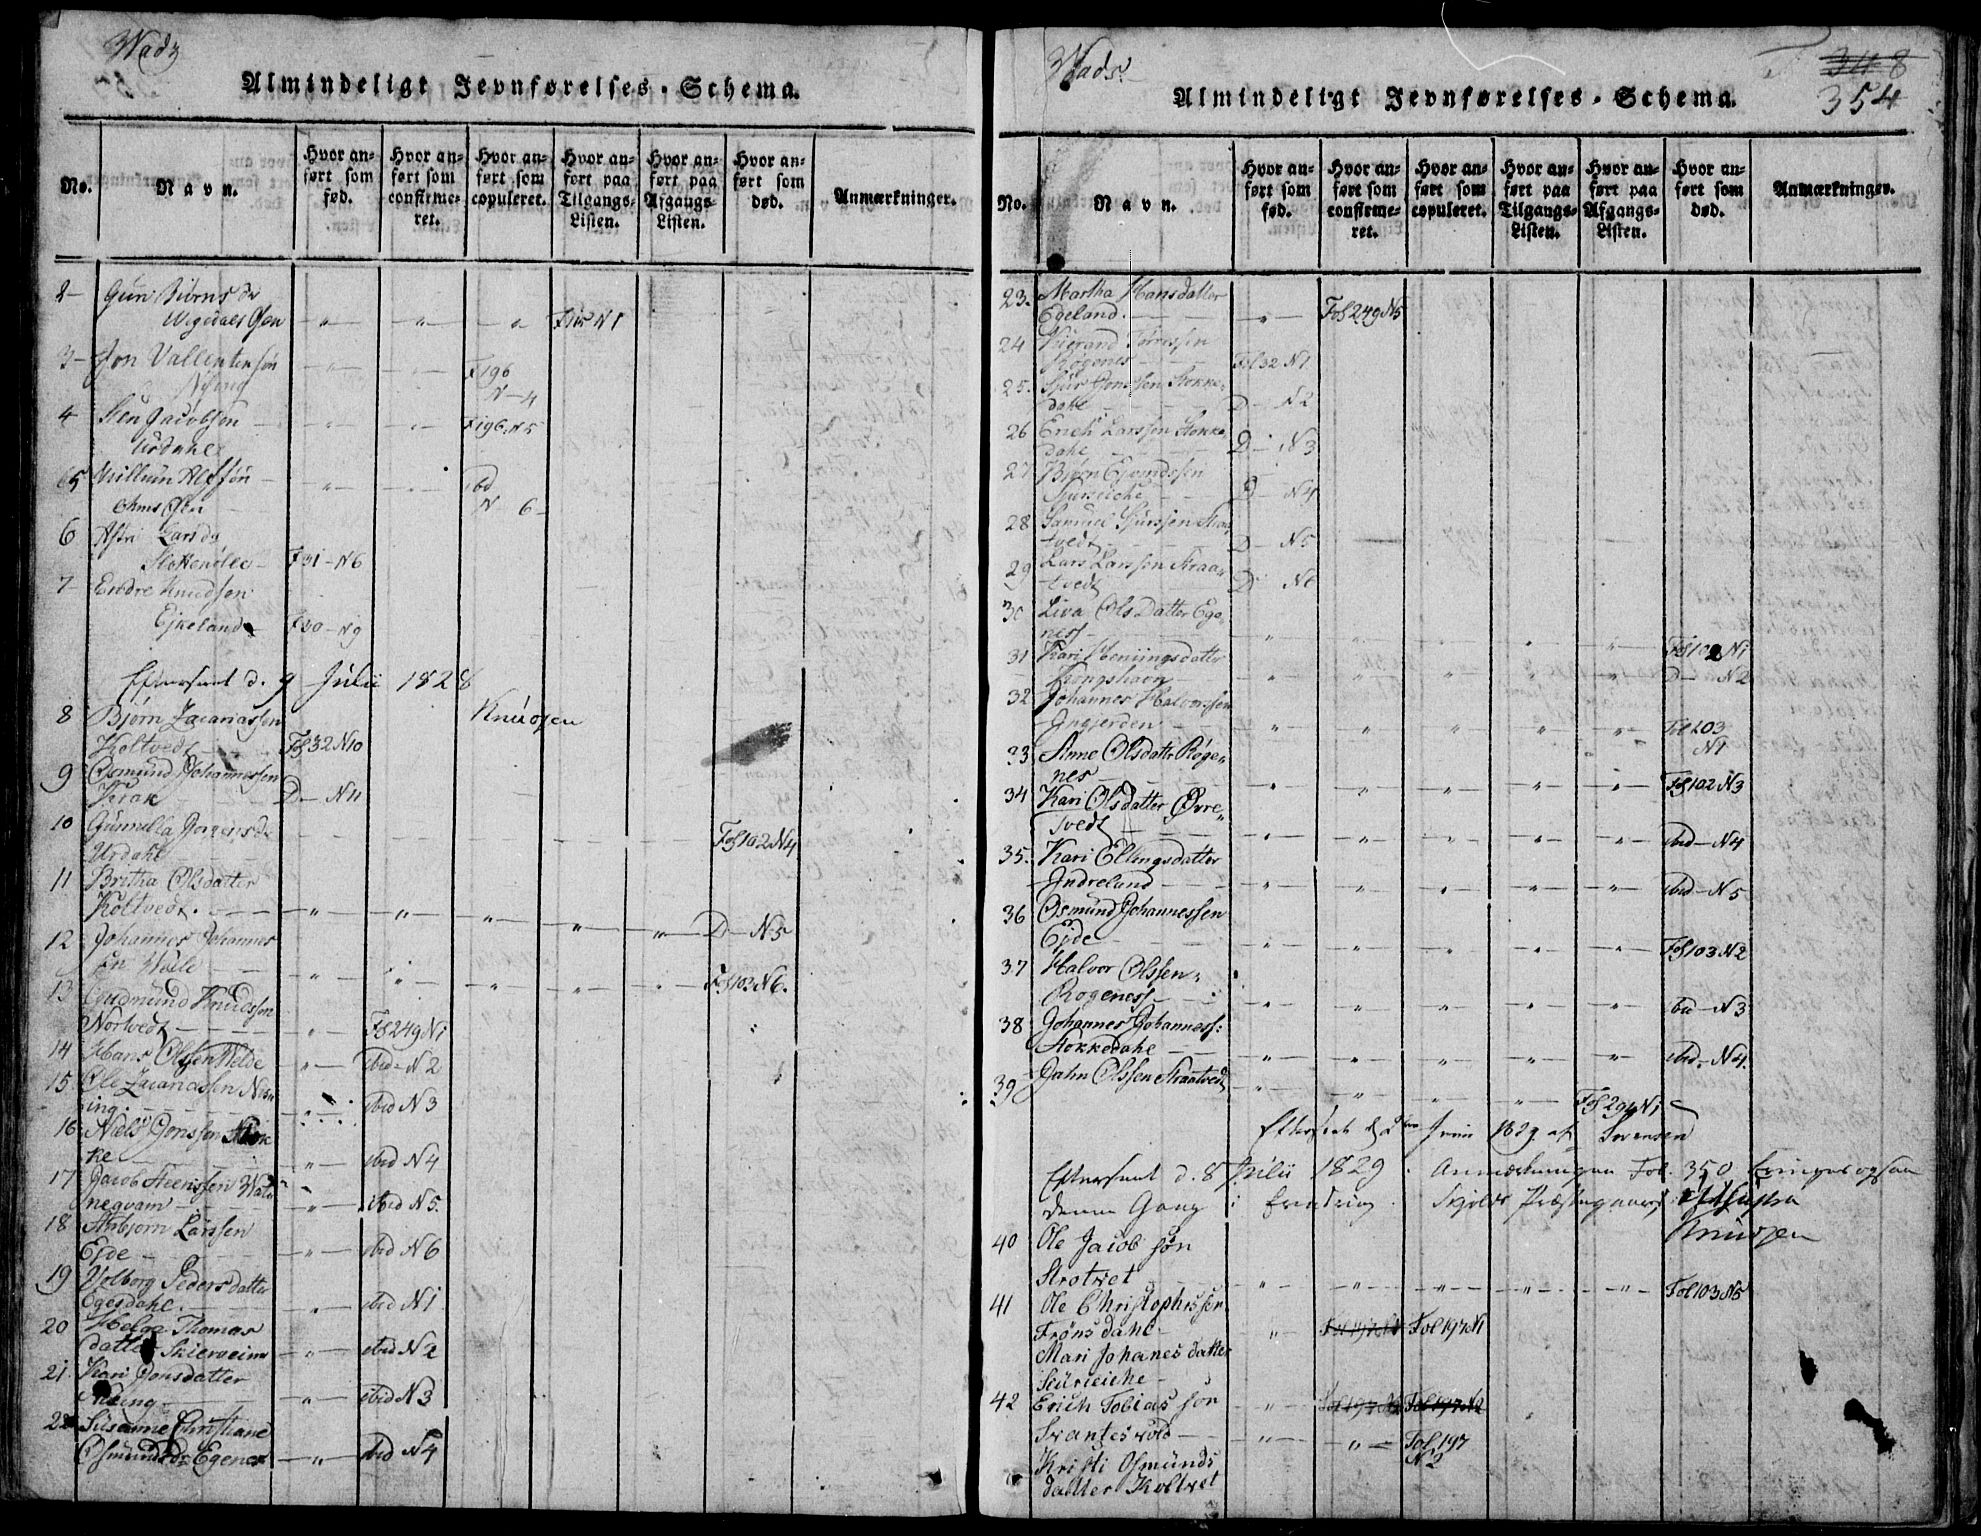 Wads
Almindeligt Jevnførelses-Schema.
No.
Navn.
Hvor anført som fød.
Hvor anført som confirmeret.
Hvor anført som copuleret.
Hvor anført paa Tilgangs-Listen.
Hvor anført paa Afgangs-Listen.
Hvor anført som død.
Anmærkninger.
2 Gun Biørns dr
— — — N 1
3 Jon Vallentinsøn
F 196
N 4
4 Sten Jacobsøn — F 196. N 5
Urdahl
5 Villum Alfsøn — ibd
N 6
6 Astri Lars dr
F 31 - N 6
7 Endre Knudsøn
Ejkeland F 30 - N 9
Efterseet d. 9 Julii 1828
Knudsen
8 Bjørn Zacariassen
Koltvedt Fol 32 N 10
9 Osmund Johannessen
Krak D — N 11
10 Gunnilla Jørgens Dr
Urdahl — Fol 102 N 4
11 Britha Olsdatter
Koltvedt. — D — N 5
12 Johannes Johannes
sen — Fol 103 N 6.
13 Gudmund Knudsson
Nortvedt — Fol 249 N 1
14 Hans Olssen — ibid - N 2
15 Ole Zacariassen
— ibid N 3
16 Niels Jonssen
ke — ibid N 4
17 Jacob Steenssen Wats
negvam — ibid N 5.
18 Asbjørn Larssen
Eide — ibid N 6
19 Volborg Peders datter
Egesdahl. — ibid N 1
20 Helga Thomas
datter — ibid N 2
21 Kari Jonsdatter
— ibid N 3
22 Susanne Christiane
Osmunds dr Egenes — ibid N 4
Wads.
348
354
Almindeligt Jevnførelses-Schema.
No.
Navn.
Hvor anført som fød.
Hvor anført som confirmeret.
Hvor anført som copuleret.
Hvor anført paa Tilgangs-Listen.
Hvor anført paa Afgangs-Listen.
Hvor anført som død.
Anmærkninger.
23. Martha Hansdatter
Egeland. — Fol 249 N 5
24 Torressen
Røgenes — Fol 32 N 1
25. Sjur Jonssen Stokke,,
dahl — D — N 2
26 Erich Larssen Stokke,,
dahl — D — N 3
27 Bjørn Ejvindssen
D — N 4
28 Samuel Sjurssen Straa,,
tvedt — D — N 5
29 Lars Larssen Straa,,
tvedt — D N 6
30 Liva Olsdatter Ege,,
ness — Fol 102 N 1
31 Kari Henningsdatter
Kongshavn — D — N 2
32 Johannes Halvorssen
— Fol 103
N 1
33 Anne Olsdatter Røge,,
nes — Fol 102 N 3
34 Kari Olsdatter Øvre,,
Tvedt — ibid - N 4
35. Kari Ellingsdatter
Indreland — ibid - N 5
36 Osmund Johannessen
Ejde — Fol 103 N 2
37 Halvor Olssen
Rogeness — ibid - N 3
38 Johannes Johanness:
Stokkedahl — ibid - N 4.
39 Jahn Olssen Straatvedt
— N 1
Efterseet d 2den Juni 1829 af Sørensen
Efterseet d. 8 Julii 1829. Anmærkningen Fol. 350 bringes ogsaa
denne Gang i Erindring. Skjolds Præstegaard
Knudsen
40 Ole Jacob søn
Strotvet — Fol 103 N 5
41 Ole Christophersen
Frønsdahl — Fol 197 N 1
Mari Johanes datter
42 Erich Tobias søn — Fol 197 N 2
Svantesvold — Fol 197
N 2
Kristi Osmunds
datter Koltvet